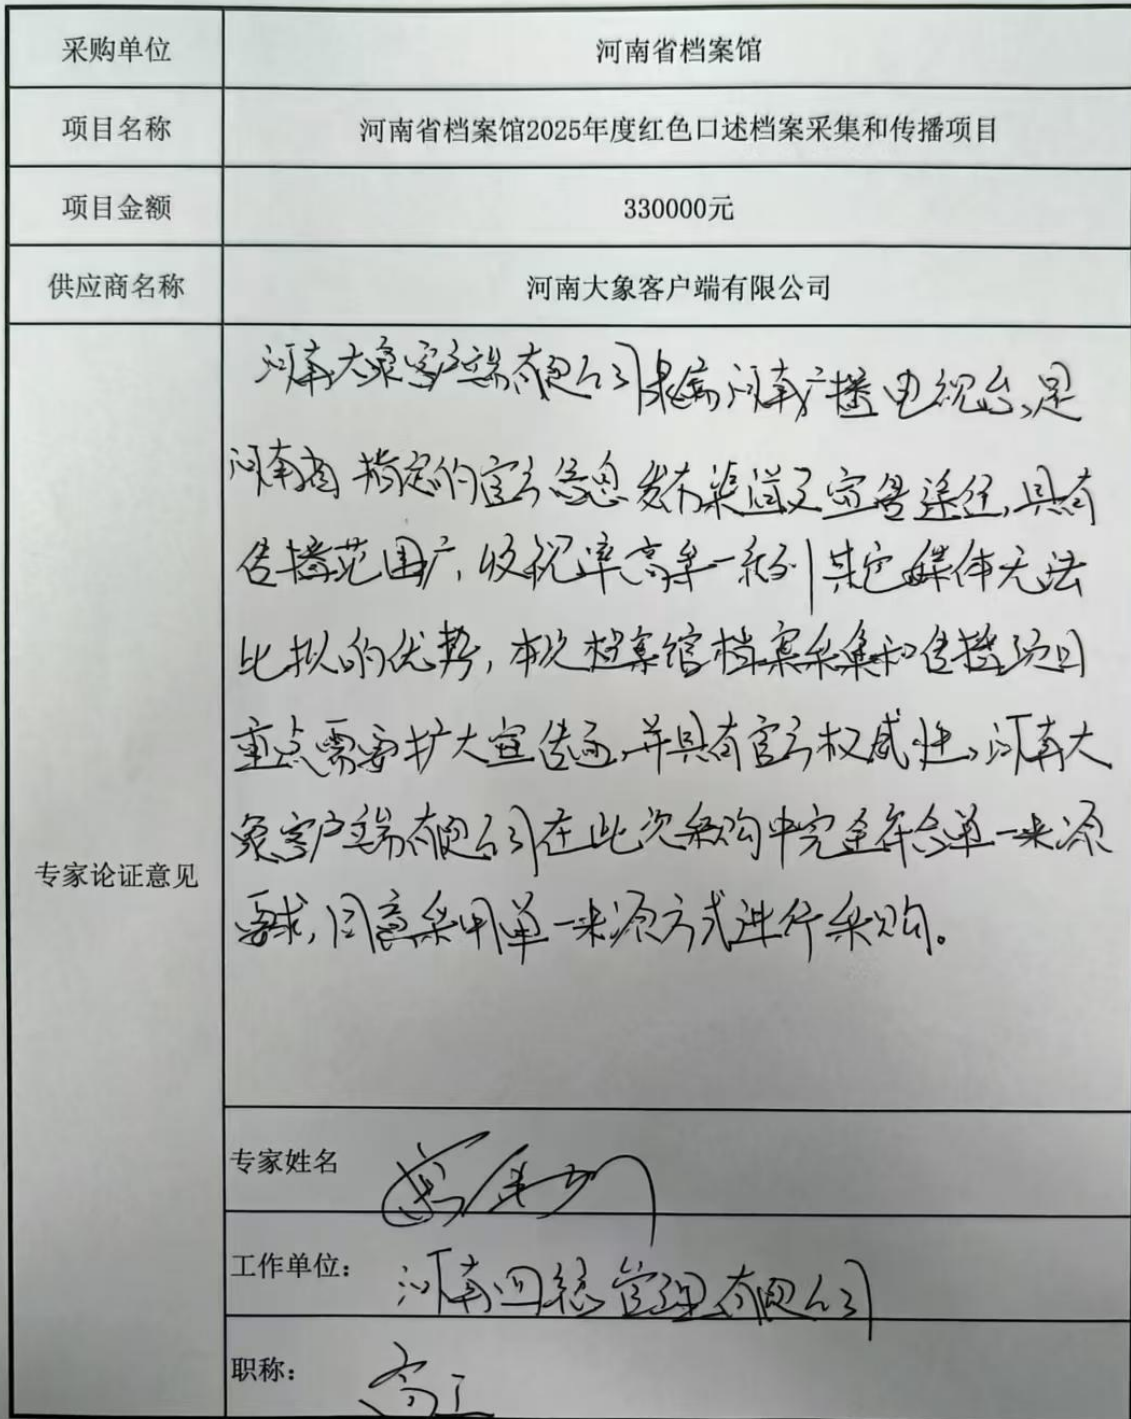 采购单位 河南省档案馆
项目名称 河南省档案馆2025年度红色口述档案采集和传播项目
项目金额 330000元
供应商名称 河南大象客户端有限公司
专家论证意见
河南大象客户端有限公司隶属河南广播电视台,是
河南省指定的官方信息发布渠道及宣传途径,具有
传播范围广,收视率高等一系列其它媒体无法
比拟的优势,本次档案馆档案采集和传播项目
重点需要扩大宣传面,并具有官方权威性,河南大
象客户端有限公司在此次采购中完全符合单一来源
要求,同意采用单一来源方式进行采购。
专家姓名
工作单位: 河南 管理有限公司
职称: 高工